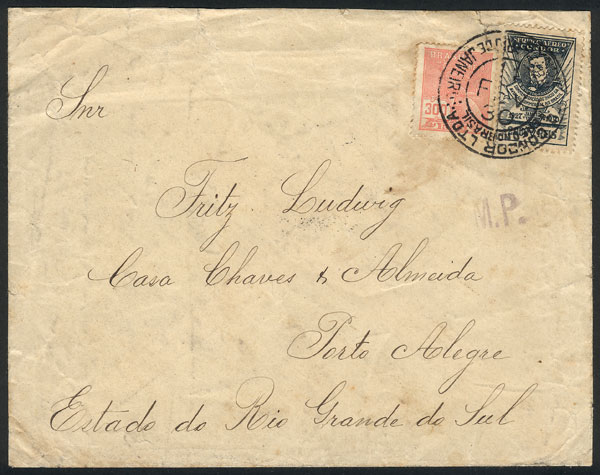 SERVIÇO AEREO
CONDOR
BRASIL
300
RIO DE JANEIRO
CONDOR LTDA
BRASIL
30
Snr
M.P.
Fritz Ludwig
Casa Chaves & Almeida
Porto Alegre
Estado do Rio Grande do Sul